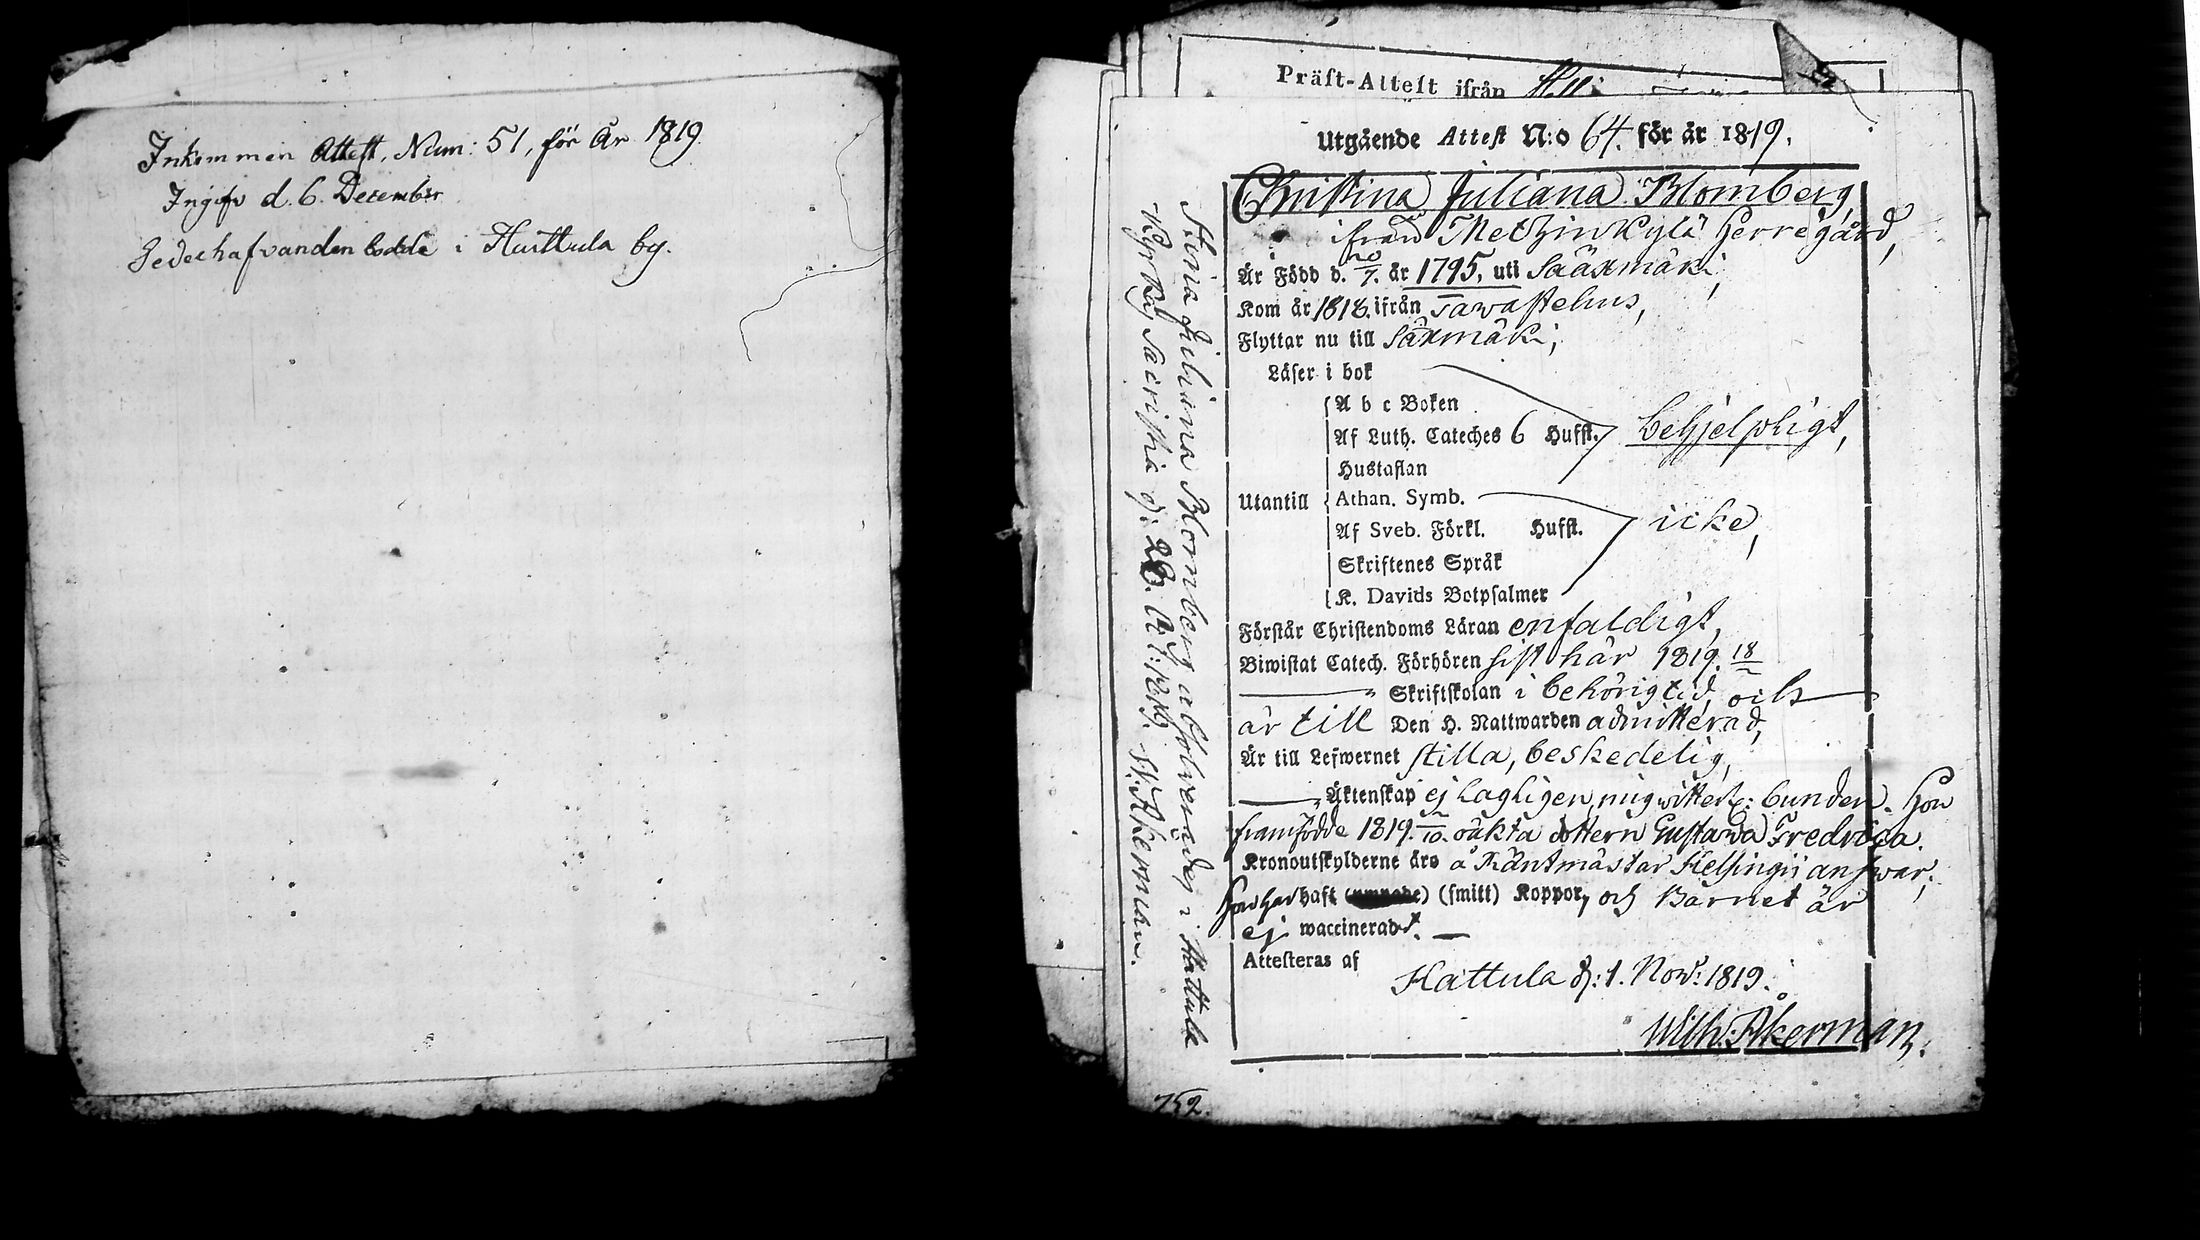 Inkommen Attest, Num: 51, för År 1819.
Ingifv d. 6. December
bodde i Hurttula by.
Präst-Attest ifrån
Utgående Attest N:o 64. för år 1819.
Christina Juliana Blomberg,
ifrån Metzinkylä Herregård,
Är Född d. 20/7. år 1795, uti Sääxmäki,
Kom år 1818. ifrån Tawastehus,
Flyttar nu till Säxmäki,
Läser i bok
A b c Boken
Af Luth. Cateches 6 Hufst. behjelpligt,
Hustaflan
Utantill Athan. Symb.
Af Sveb. Förkl. Hufst. icke,
Skriftenes Språk
K. Davids Botpsalmer
Förstår Christendoms Läran enfaldigt,
Biwistat Catech. Förhören sist här 1819. 18
Skriftskolan i behörig tid, och
är till Den H. Nattwarden admitterad,
Är till Lefwernet stilla, beskedelig,
Äktenskap ej lagligen, mig witterl: bunden. Hon
framfödde 1819. /10. oäkta dottern Gustawa Fredrica.
Kronoutskylderne äro å Räntmästar Helsingii answar,
Hon har haft (smitt) Koppor, och Barnet är
ej waccinerad. —
Attesteras af
Hattula d: 1. Nov: 1819.
Wilh: Åkerman.
Stina Juliana Blomberg absolverades i Hattula
Kyrkas Sacristia d: 28. 1819. W. Åkerman.
752.